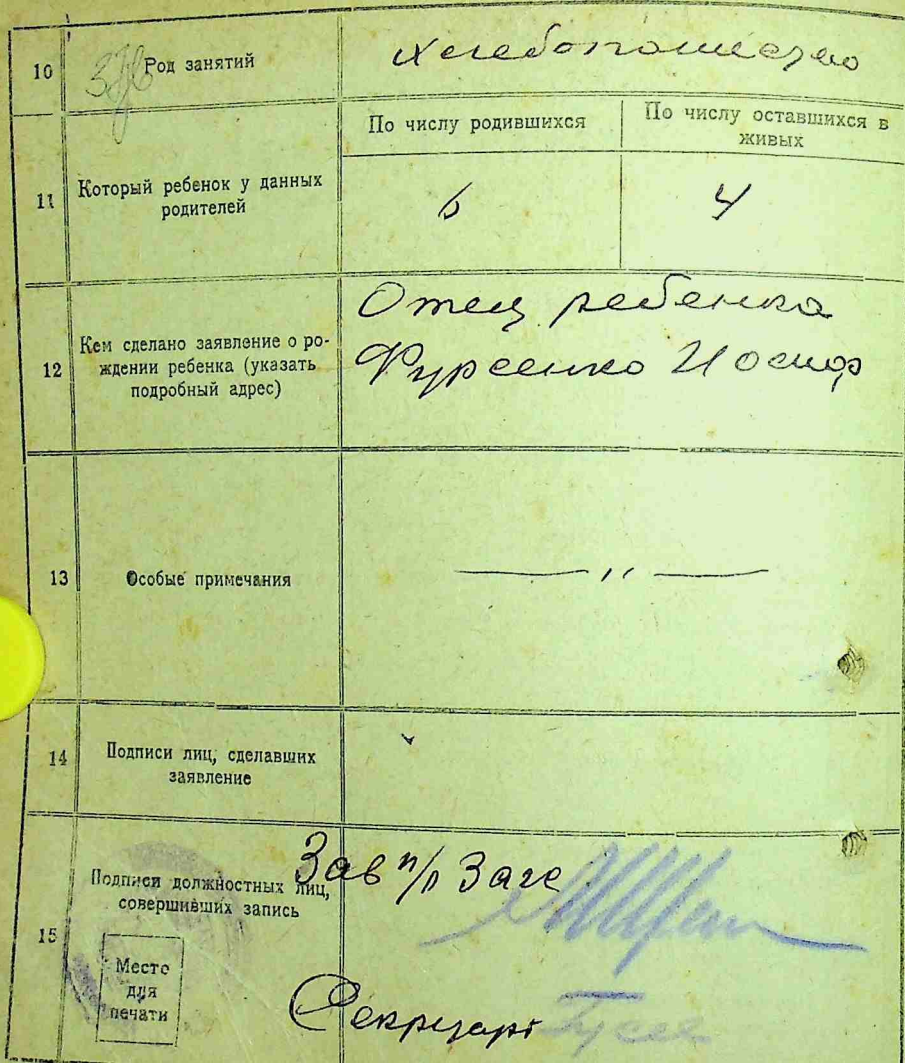 10 Род занятий Хлебопашество
По числу родившихся По числу оставшихся в
живых
11 Который ребенок у данных
родителей
6 4
12 Кем сделано заявление о ро-
ждении ребенка (указать
подробный адрес)
Отец ребенка
Фурсенко Иосиф
13 Особые примечания — „ —
14 Подписи лиц, сделавших
заявление
15 Подписи должностных лиц,
совершивших запись
Зав п/о Загс
Место
для
печати
Секретарь